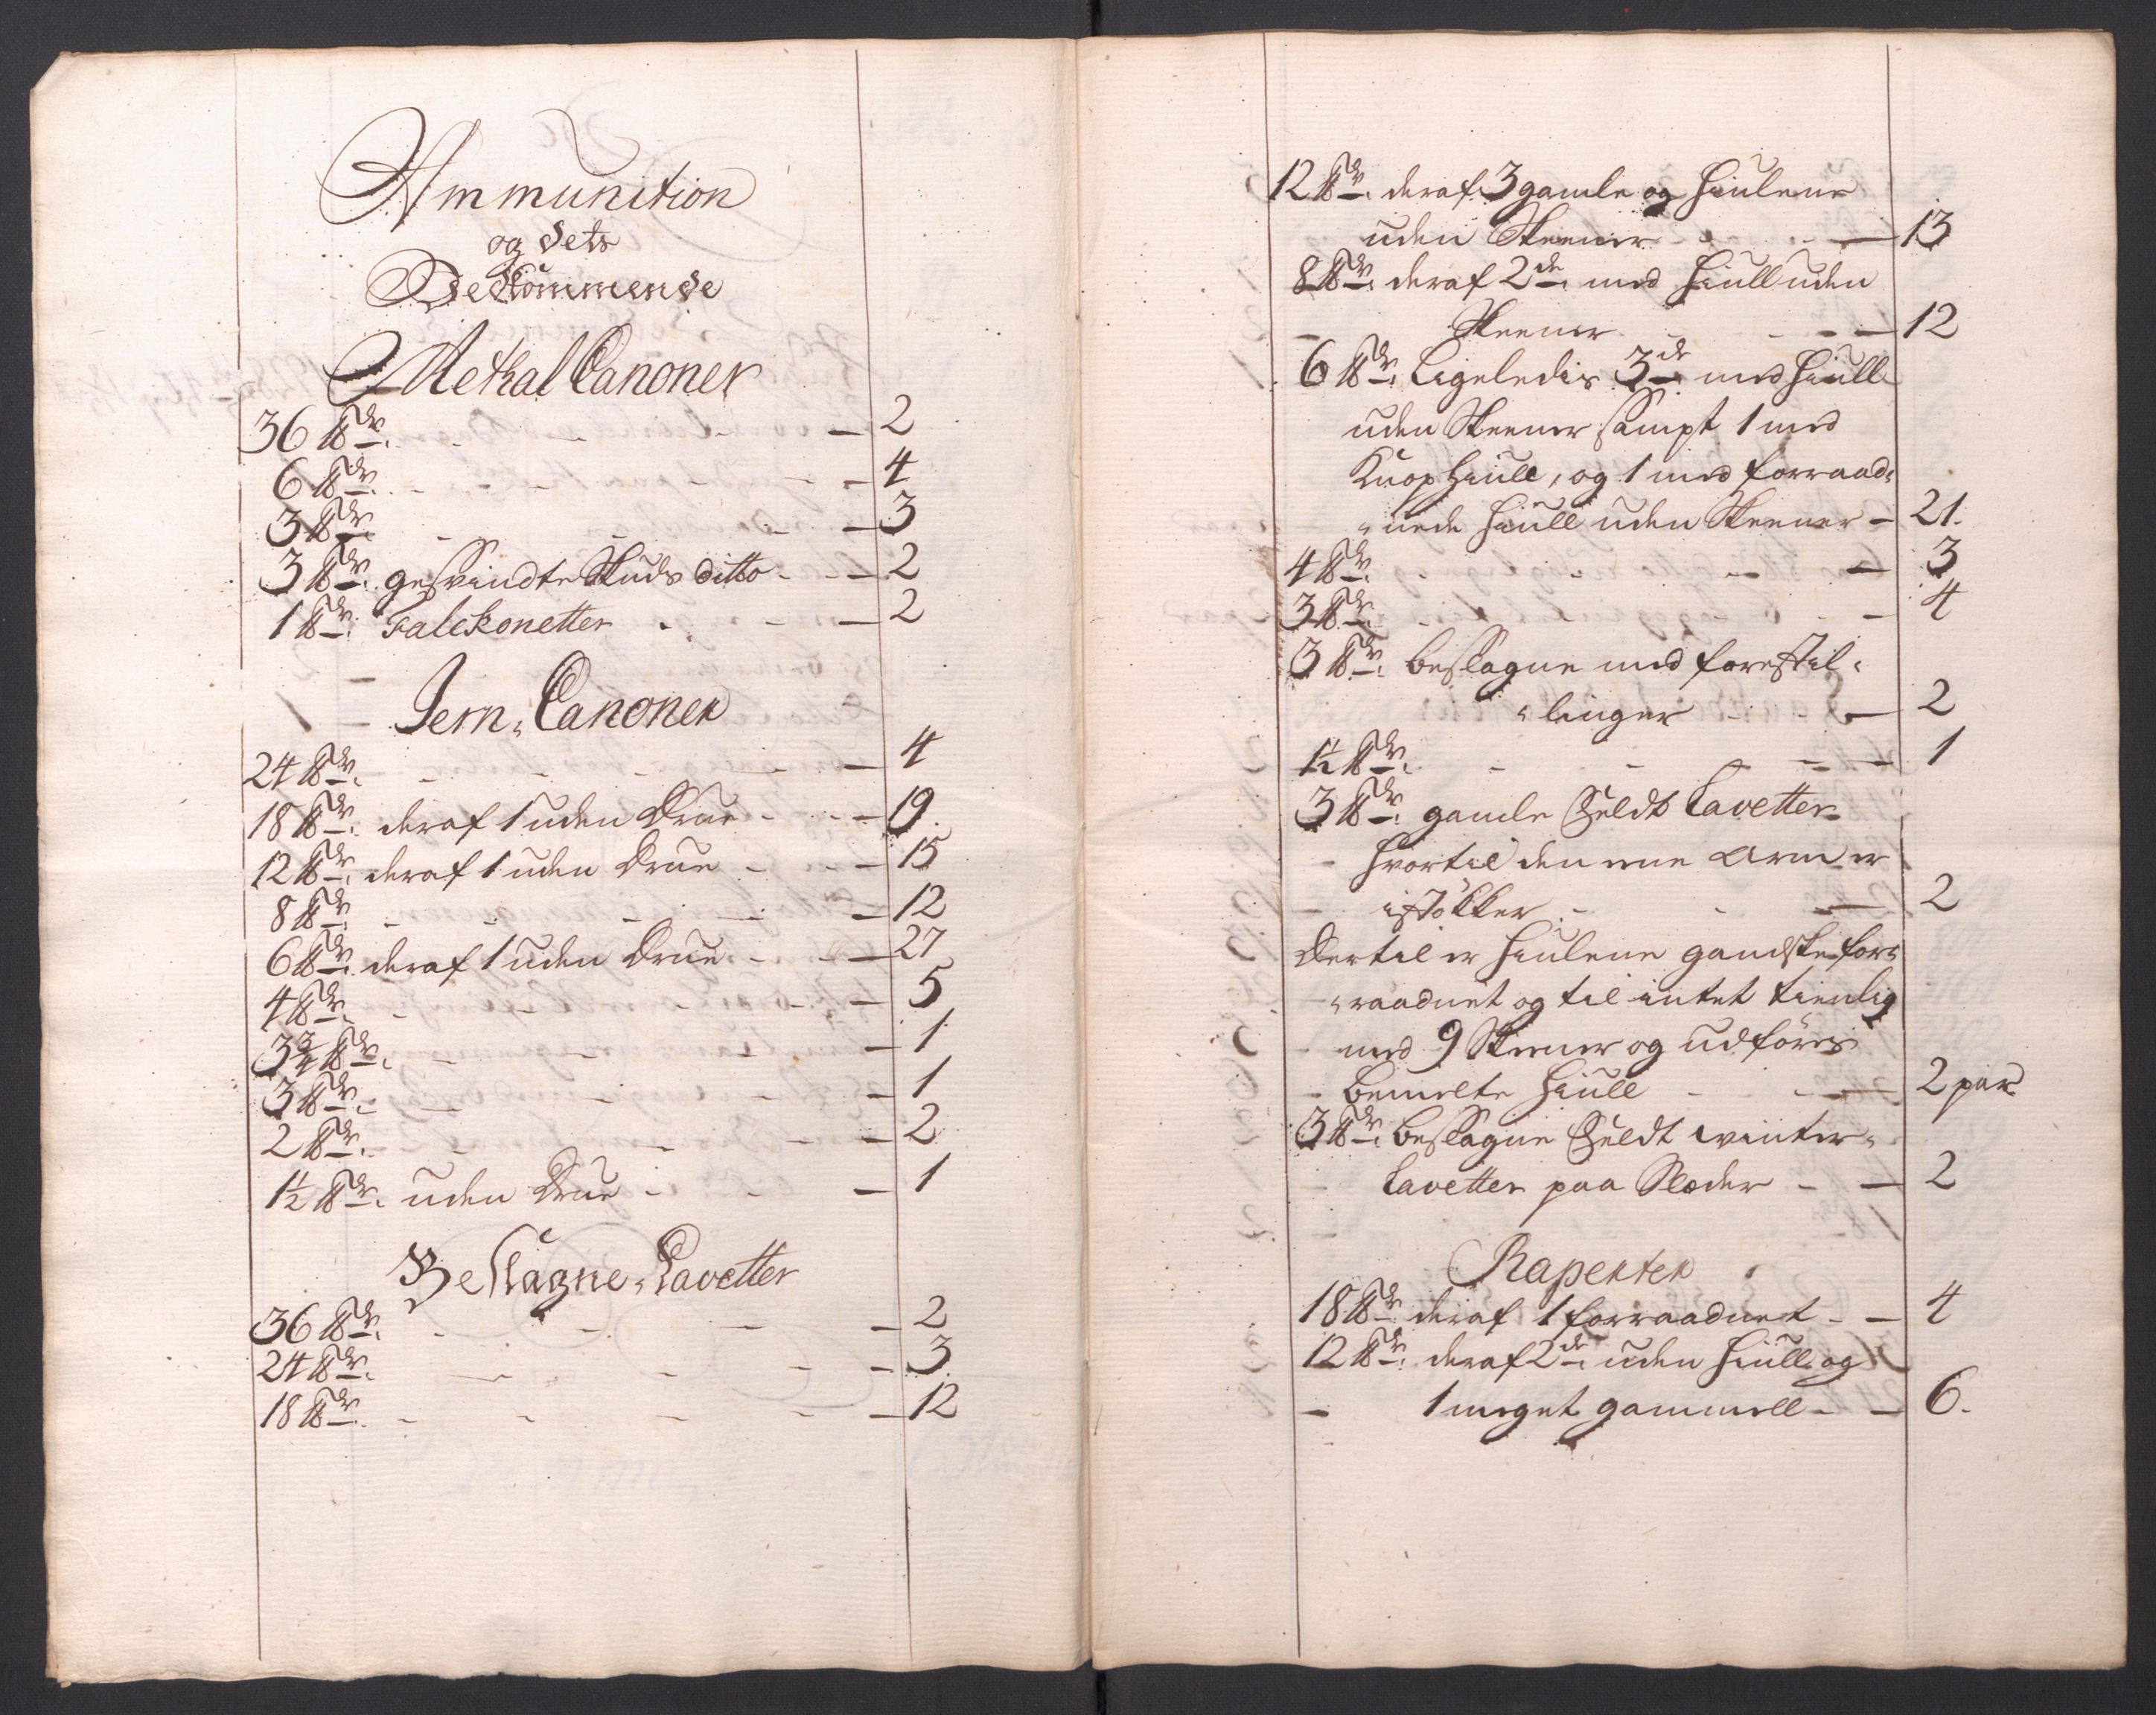 Ammunition
og dets
Bekommende
Metal Canoner
36 ℔dr. - - - 2
6 ℔dr. - - - 4
3 ℔dr. - - - 3
3 ℔dr. gesvindte Skuds ditto - - 2
1 ℔dr. Falckonetter - - 2
Jern Canoner
24 ℔dr. - - - 4
18 ℔dr. deraf 1 uden Drue - - 19.
12 ℔dr. deraf 1 uden Drue - - 15
8 ℔dr. - - - 12
6 ℔dr. deraf 1 uden Drue - - 27
4 ℔dr. - - - 5
3¾ ℔dr. - - - 1
3 ℔dr. - - - 1
2 ℔dr. - - - 2
1½ ℔dr. uden Drue - - 1
Beslagne Lavetter
36 ℔dr. - - - 2
24 ℔dr. - - - 3
18 ℔dr. - - - 12
12 ℔dr. deraf 3 gamle og Hiulene
uden Skeener - - 13
8 ℔dr. deraf 2de med Hiull uden
Skeener - - 12
6 ℔dr. Ligeledis 3de med Hiull
uden Skeener sampt 1 med
Kuop Hiull, og 1 med forraad-
nede Hiull uden Skeener - 21.
4 ℔dr. - - - 3
3 ℔dr. - - - 4
3 ℔dr. beslagne med forestil-
linger - - 2
1½ ℔dr. - - - 1
3 ℔dr. gamle Feldt Lavetter
hvortil den eene Arm er
istökker - - 2
Dertil er Hiulene gandske for-
raadnet og til intet tienlig
med 9 Skeener og udföres
bemelte Hiull - - 2 par
3 ℔dr. beslagne Feldt winter-
Lavetter paa Slæder - - 2
Raperter
18 ℔dr. deraf 1 forraadnet - - 4
12 ℔dr. deraf 2de uden Hiull og
1 meget gammell - - 6.